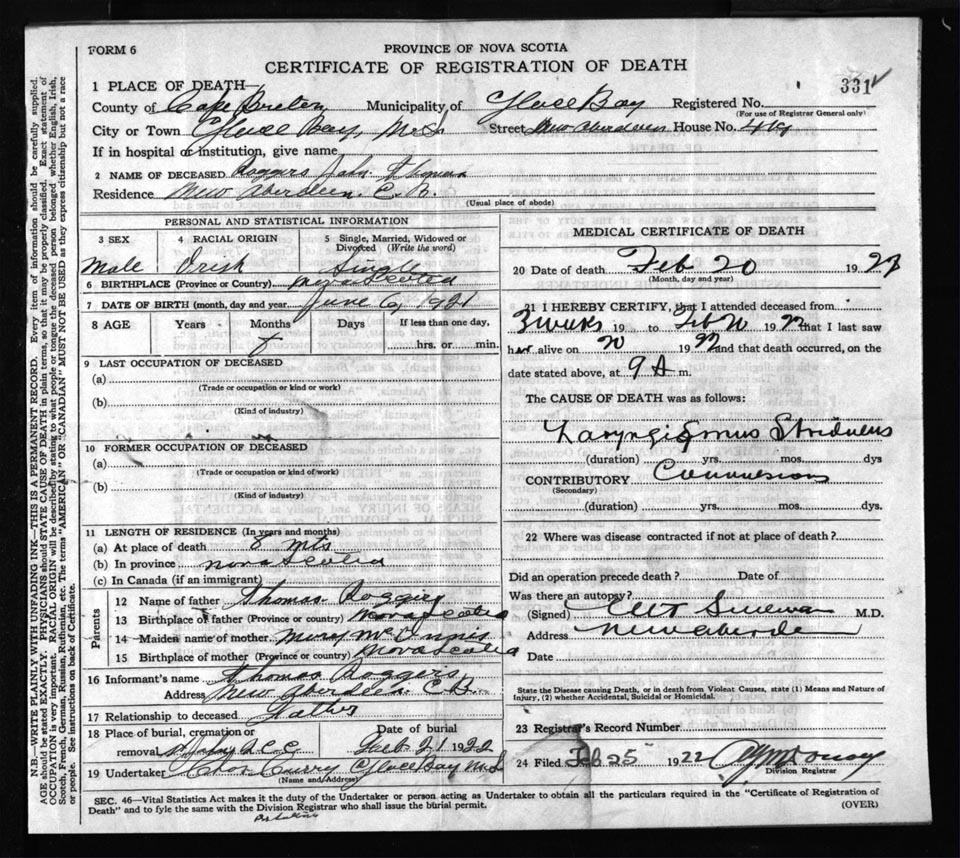 FORM 6
PROVINCE OF NOVA SCOTIA
CERTIFICATE OF REGISTRATION OF DEATH
331
1 PLACE OF DEATH—
County of Cape Breton Municipality of Glace Bay Registered No.
(For use of Registrar General only)
City or Town Glace Bay, N.S. Street New Aberdeen House No.
If in hospital or institution, give name
2 NAME OF DECEASED Roggers John Thomas
Residence New Aberdeen. C. B.
(Usual place of abode)
PERSONAL AND STATISTICAL INFORMATION
3 SEX 4 RACIAL ORIGIN 5 Single, Married, Widowed or Divorced (Write the word)
Male Irish Single
6 BIRTHPLACE (Province or Country) Nova Scotia
7 DATE OF BIRTH (month, day and year) June 6, 1921
8 AGE Years Months Days If less than one day,
hrs. or min.
9 LAST OCCUPATION OF DECEASED
(a)
(Trade or occupation or kind or work)
(b)
(Kind of industry)
10 FORMER OCCUPATION OF DECEASED
(a)
(Trade or occupation or kind of work)
(b)
(Kind of industry)
11 LENGTH OF RESIDENCE (In years and months)
(a) At place of death 8 mts
(b) In province Nova Scotia
(c) In Canada (if an immigrant)
Parents
12 Name of father Thomas Roggers
13 Birthplace of father (Province or country) Nova Scotia
14 Maiden name of mother Mary McInnis
15 Birthplace of mother (Province or country) Nova Scotia
16 Informant's name Thomas Roggers
Address New Aberdeen. C B.
17 Relationship to deceased Father
18 Place of burial, cremation or Date of burial
removal Feb 21 1922
19 Undertaker Chas Curry Glace Bay N.S
(Name and address)
MEDICAL CERTIFICATE OF DEATH
20 Date of death Feb 20 1922
(Month, day and year)
21 I HEREBY CERTIFY, that I attended deceased from
3 weeks 19 to Feb 20 1922 that I last saw
h alive on 20 1922 and that death occurred, on the
date stated above, at 9 A m.
The CAUSE OF DEATH was as follows:
Laryngismus Stridulus
(duration) yrs. mos. dys
CONTRIBUTORY Convulsions
(Secondary)
(duration) yrs. mos. dys.
22 Where was disease contracted if not at place of death?
Did an operation precede death? Date of
Was there an autopsy?
(Signed) Sullivan M.D.
Address New Aberdeen
Date
State the Disease causing Death, or in death from Violent Causes, state (1) Means and Nature of
Injury, (2) whether Accidental, Suicidal or Homicidal.
23 Registrar's Record Number
24 Filed Feb 25 1922
Division Registrar
SEC. 46—Vital Statistics Act makes it the duty of the Undertaker or person acting as Undertaker to obtain all the particulars required in the "Certificate of Registration of
Death" and to fyle the same with the Division Registrar who shall issue the burial permit. (OVER)
N.B.—WRITE PLAINLY WITH UNFADING INK—THIS IS A PERMANENT RECORD. Every item of information should be carefully supplied.
AGE should be stated EXACTLY. PHYSICIANS should STATE CAUSE OF DEATH in plain terms, so that it may be properly classified. Exact statement of
OCCUPATION is very important. RACIAL ORIGIN will be described by stating to what people or tongue the deceased person belonged whether English, Irish,
Scotch, French, German, Russian, Ruthenian, etc. The terms "AMERICAN" OR "CANADIAN" MUST NOT BE USED as they express citizenship but not a race
or people. See instructions on back of Certificate.